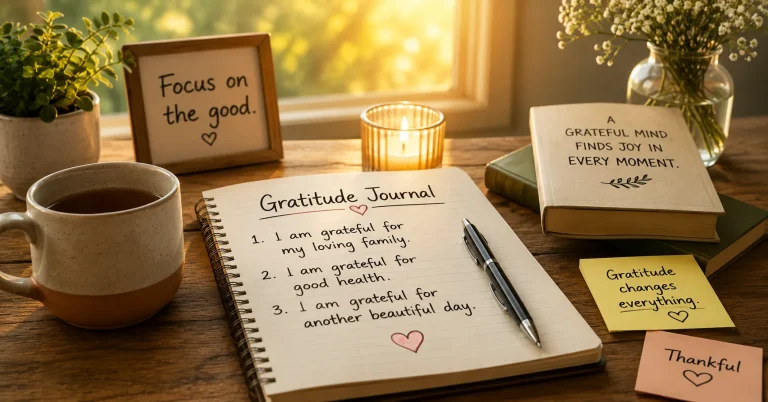 Focus on
the good.
A
GRATEFUL MIND
FINDS JOY IN
EVERY MOMENT.
Gratitude Journal
1. I am grateful for
my loving family.
2. I am grateful for
good health.
3. I am grateful for
another beautiful day.
Gratitude
changes
everything.
Thankful